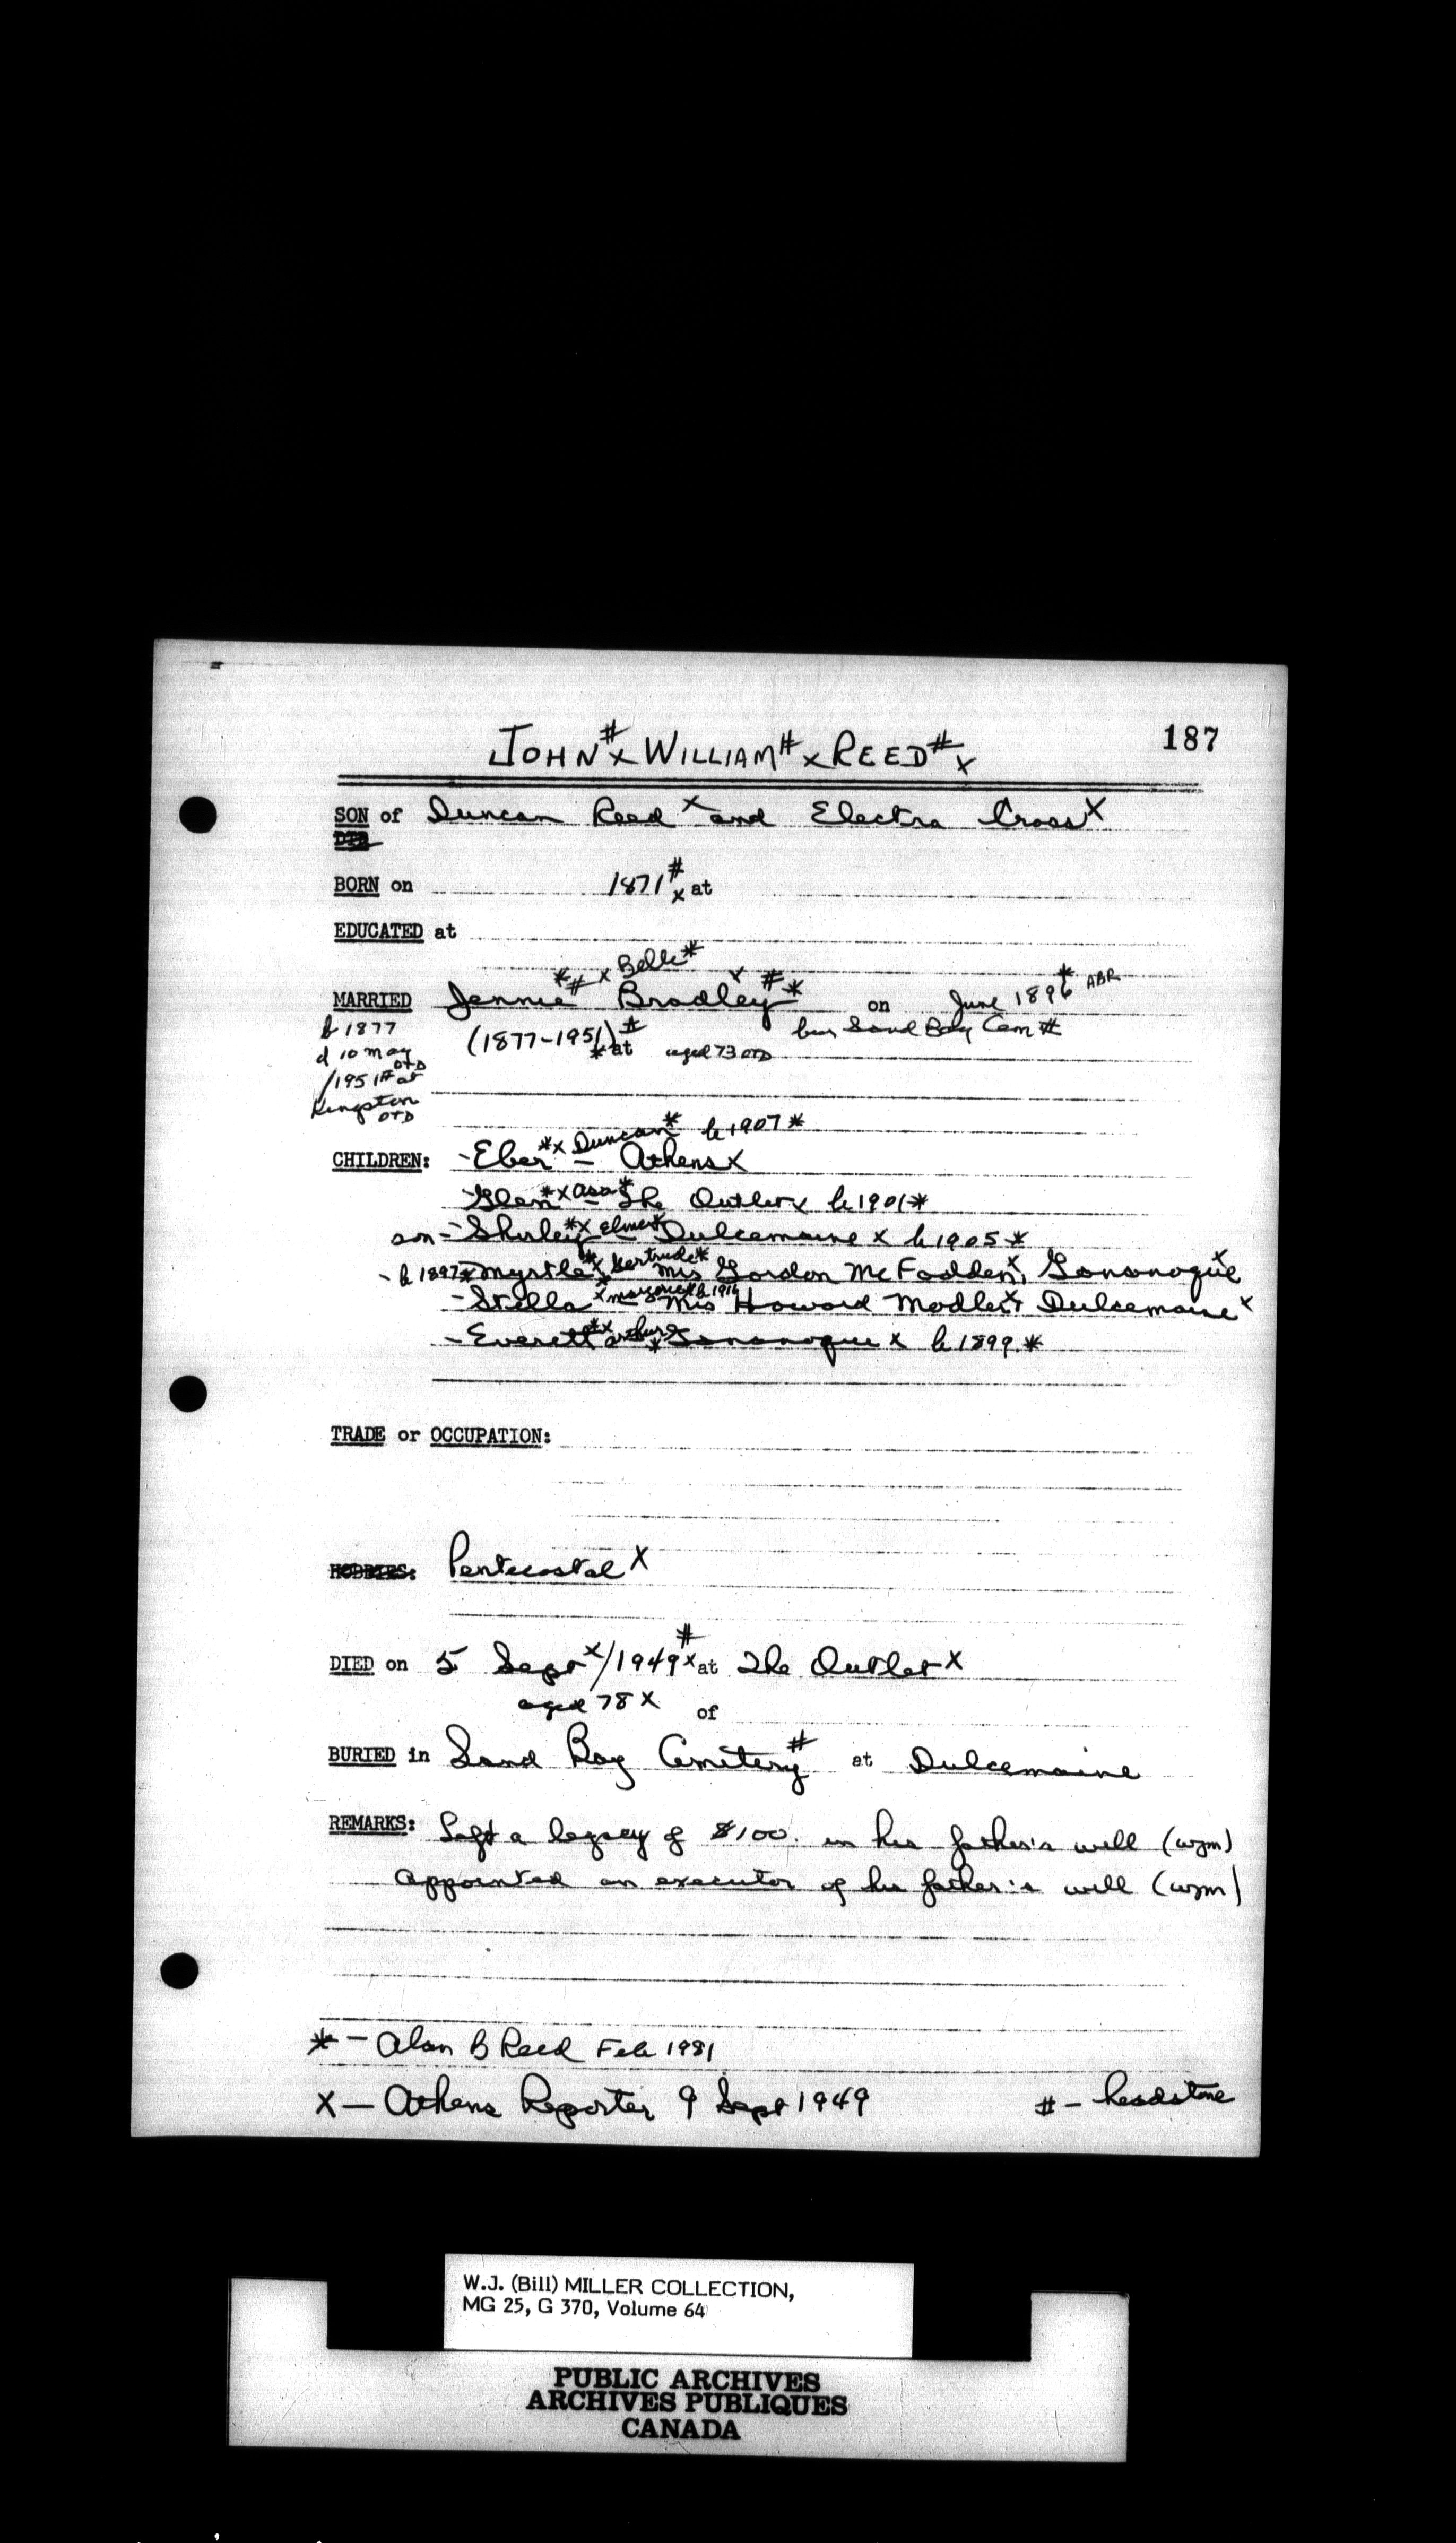 187
JOHN#x WILLIAM#x REED#x
SON of Duncan Reed x and Electra Cross x
DTR
BORN on 1871#x at
EDUCATED at
Belle*
MARRIED Jennie*#x Bradley x#* on June 1896* ABR
b 1877 (1877-1951)#* at aged 73 OTD bur Sand Bay Cem #
d 10 May OTD
/1951# at
Kingston OTD
CHILDREN: -Eber*x Duncan* - Athens x b 1907*
-Glen*x Asa* - The Outlet x b 1901*
son - Shirley*x Elmer* - Dulcemaine x b 1905*
- b 1897* Myrtle*x Gertrude* Mrs Gordon McFadden x, Gananoque x
-Stella x Marjorie* b 1916 - Mrs Howard Modler x Dulcemaine x
-Everett*x Arthur* Gananoque x b 1899.*
TRADE or OCCUPATION:
HOBBIES: Pentecostal x
DIED on 5 Sept x/1949#x at The Outlet x
aged 78 x of
BURIED in Sand Bay Cemetery# at Dulcemaine
REMARKS: Left a legacy of $100. in his father's will (wjm)
appointed an executor of his father's will (wjm)
* - Alan B Reed Feb 1981
x - Athens Reporter 9 Sept 1949 # - headstone
W.J. (Bill) MILLER COLLECTION,
MG 25, G 370, Volume 64
PUBLIC ARCHIVES
ARCHIVES PUBLIQUES
CANADA